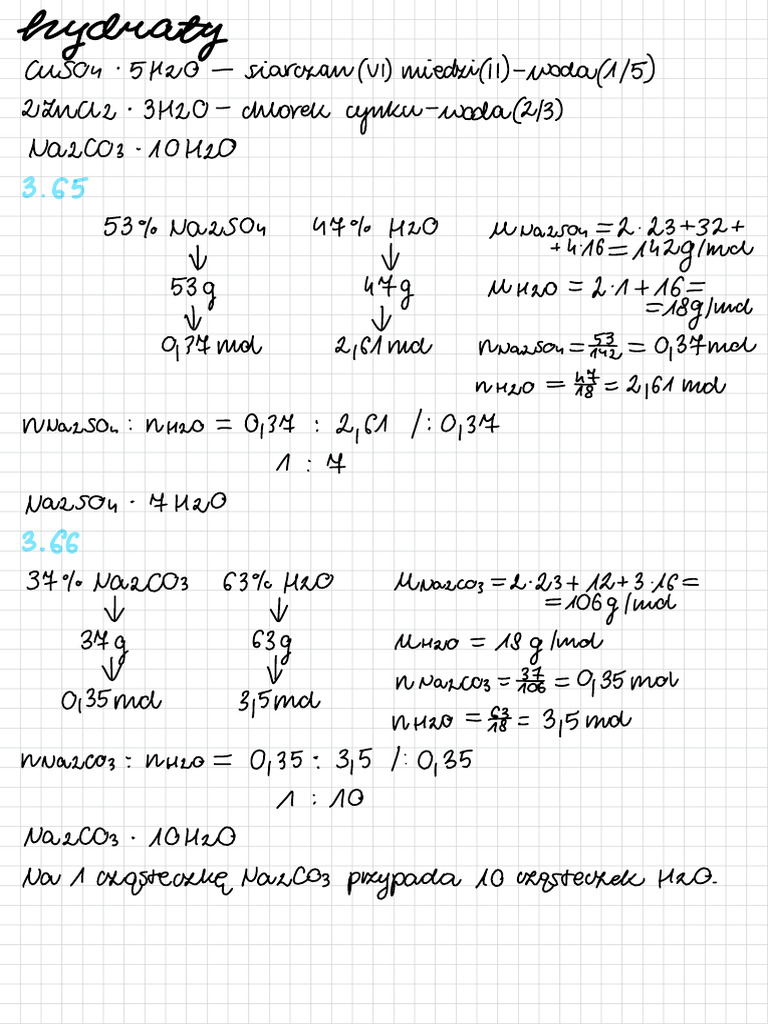 hydraty
CuSO4 · 5H2O – siarczan(VI) miedzi(II)–woda(1/5)
2ZnCl2 · 3H2O – chlorek cynku–woda(2/3)
Na2CO3 · 10H2O
3.65
53% Na2SO4 47% H2O MNa2SO4 = 2·23+32+
+4·16 = 142g/mol
↓ ↓
53g 47g MH2O = 2·1+16 =
= 18g/mol
↓ ↓
0,37mol 2,61mol nNa2SO4 = 53/142 = 0,37mol
nH2O = 47/18 = 2,61 mol
nNa2SO4 : nH2O = 0,37 : 2,61 /: 0,37
1 : 7
Na2SO4 · 7H2O
3.66
37% Na2CO3 63% H2O MNa2CO3 = 2·23+12+3·16 =
= 106g/mol
↓ ↓
37g 63g MH2O = 18 g/mol
↓ ↓
0,35mol 3,5mol nNa2CO3 = 37/106 = 0,35 mol
nH2O = 63/18 = 3,5 mol
nNa2CO3 : nH2O = 0,35 : 3,5 /: 0,35
1 : 10
Na2CO3 · 10H2O
Na 1 cząsteczkę Na2CO3 przypada 10 cząsteczek H2O.